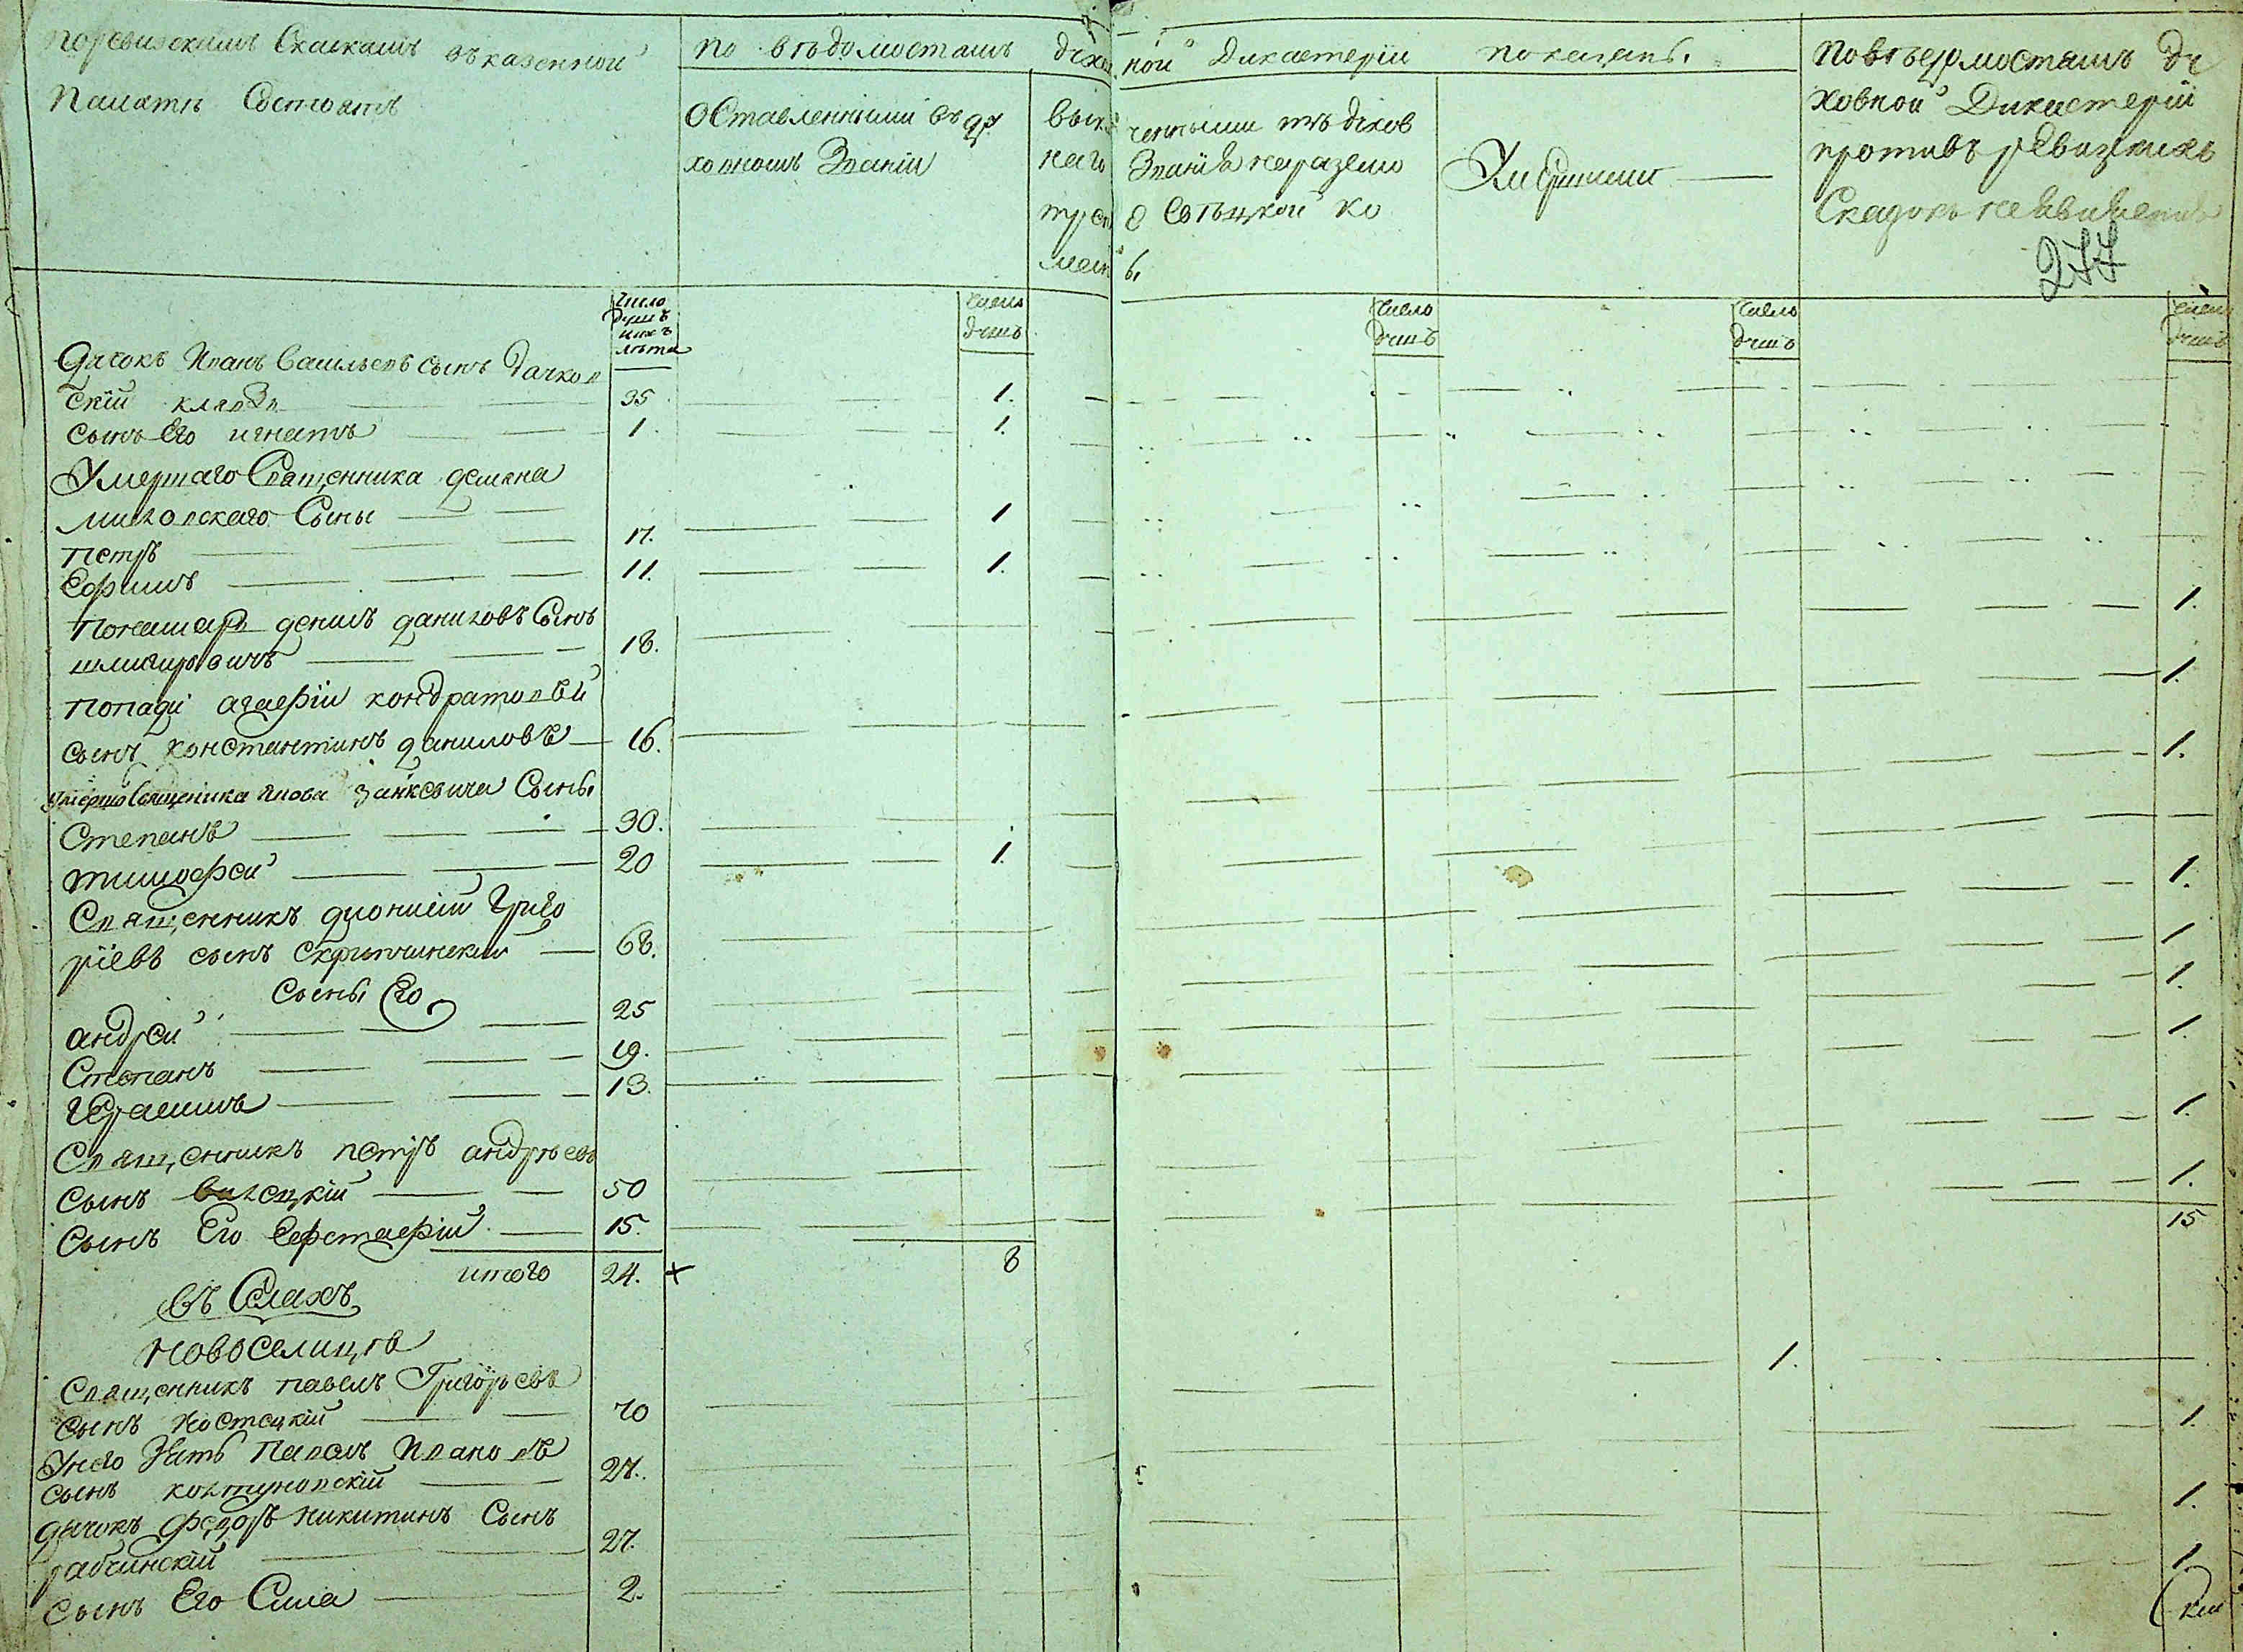 По ревизскимъ Сказкамъ въ казенной
Палатѣ Состоятъ
по вѣдомостамъ духов
ной Дикастеріи показаны
Оставленными въ ду
ховномъ Званіи
ченными изъ духов
Званія
Умершими
По вѣдомостамъ ду
ховной Дикастеріи
противъ ревизкихъ
Сказокъ не
277
Число
душъ
ихъ
лѣта
Число
душъ
Число
душъ
Число
душъ
Число
душъ
Дячокъ Иванъ Васильевъ сынъ Дачков
скій 35 1.
сынъ Его игнатъ 1. 1.
Умершаго Священника демяна
Сыны
Петръ 17. 1
Ефимъ 11. 1.
Понамарь данилъ даниловъ Сынъ
18. 1.
попади агафіи кондратовой
сынъ константинъ даниловъ 16. 1.
умершо Священика якова занкевича Сыны
Степанъ 30. 1.
тимофей 20 1.
Священникъ дионисій Григо
ріевъ сынъ Скрипчинский 68. 1.
Сыны Его
андрей 25 1
Степанъ 19. 1.
Герасимъ 13. 1
Священникъ петръ андрѣевъ
сынъ 50 1.
Сынъ Его Евстафій 15. 1.
итого 24. + 8 15
Въ Селахъ
новоселицѣ
Священникъ павелъ Григорьевъ
сынъ костецкій 70 1.
У него Зять Павелъ Ивановъ
сынъ колтуновскій 27. 1.
дячокъ федоръ никитинъ Сынъ
рабчинскій 27. 1.
сынъ Его Сила 2. 1.